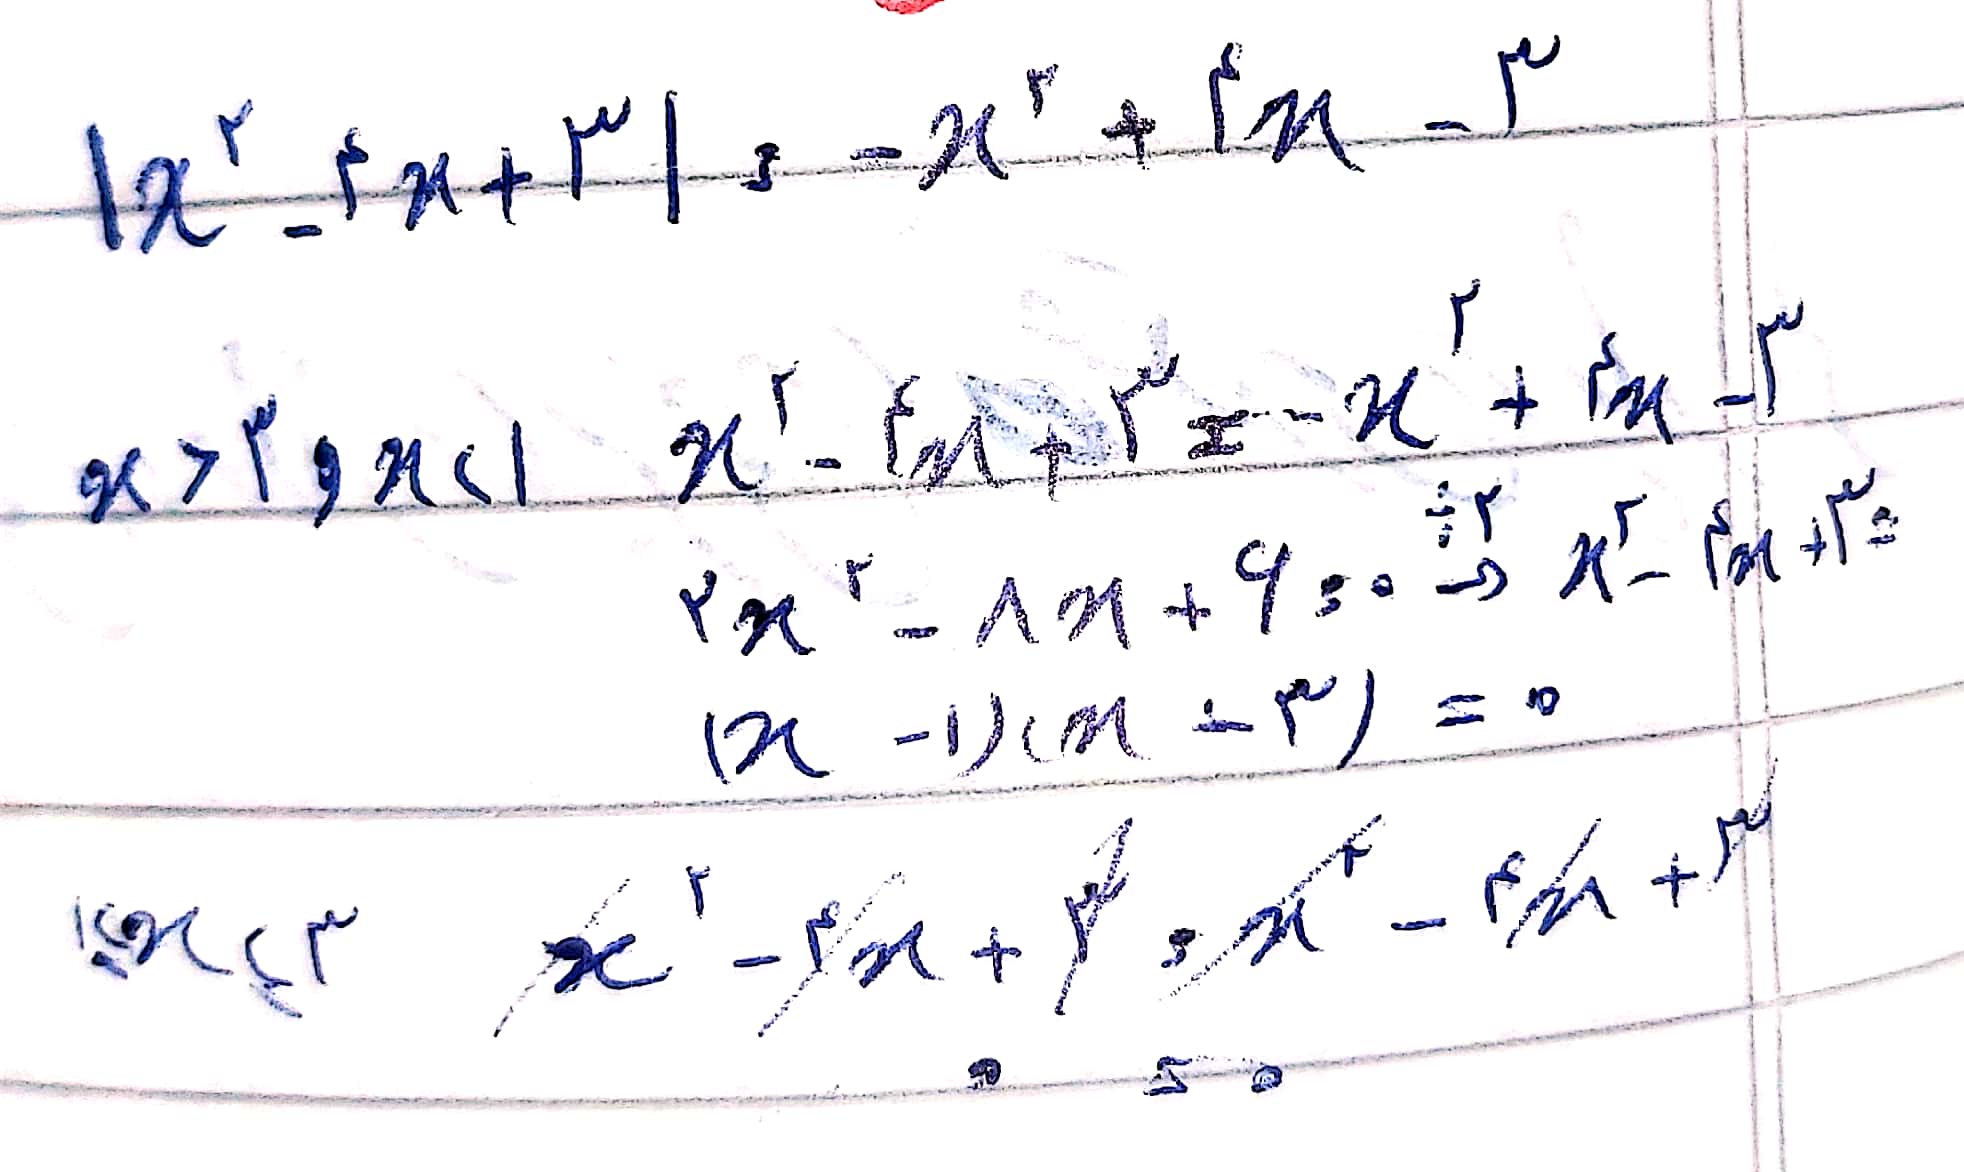 |x² - ۴x + ۳| = -x² + ۴x - ۳
x > ۳ و x < ۱ x² - ۴x + ۳ = -x² + ۴x - ۳
۲x² - ۸x + ۶ = ۰ ÷۲→ x² - ۴x + ۳ =
(x - ۱)(x - ۳) = ۰
۱ ≤ x ≤ ۳ x² - ۴x + ۳ = x² - ۴x + ۳
۰ = ۰